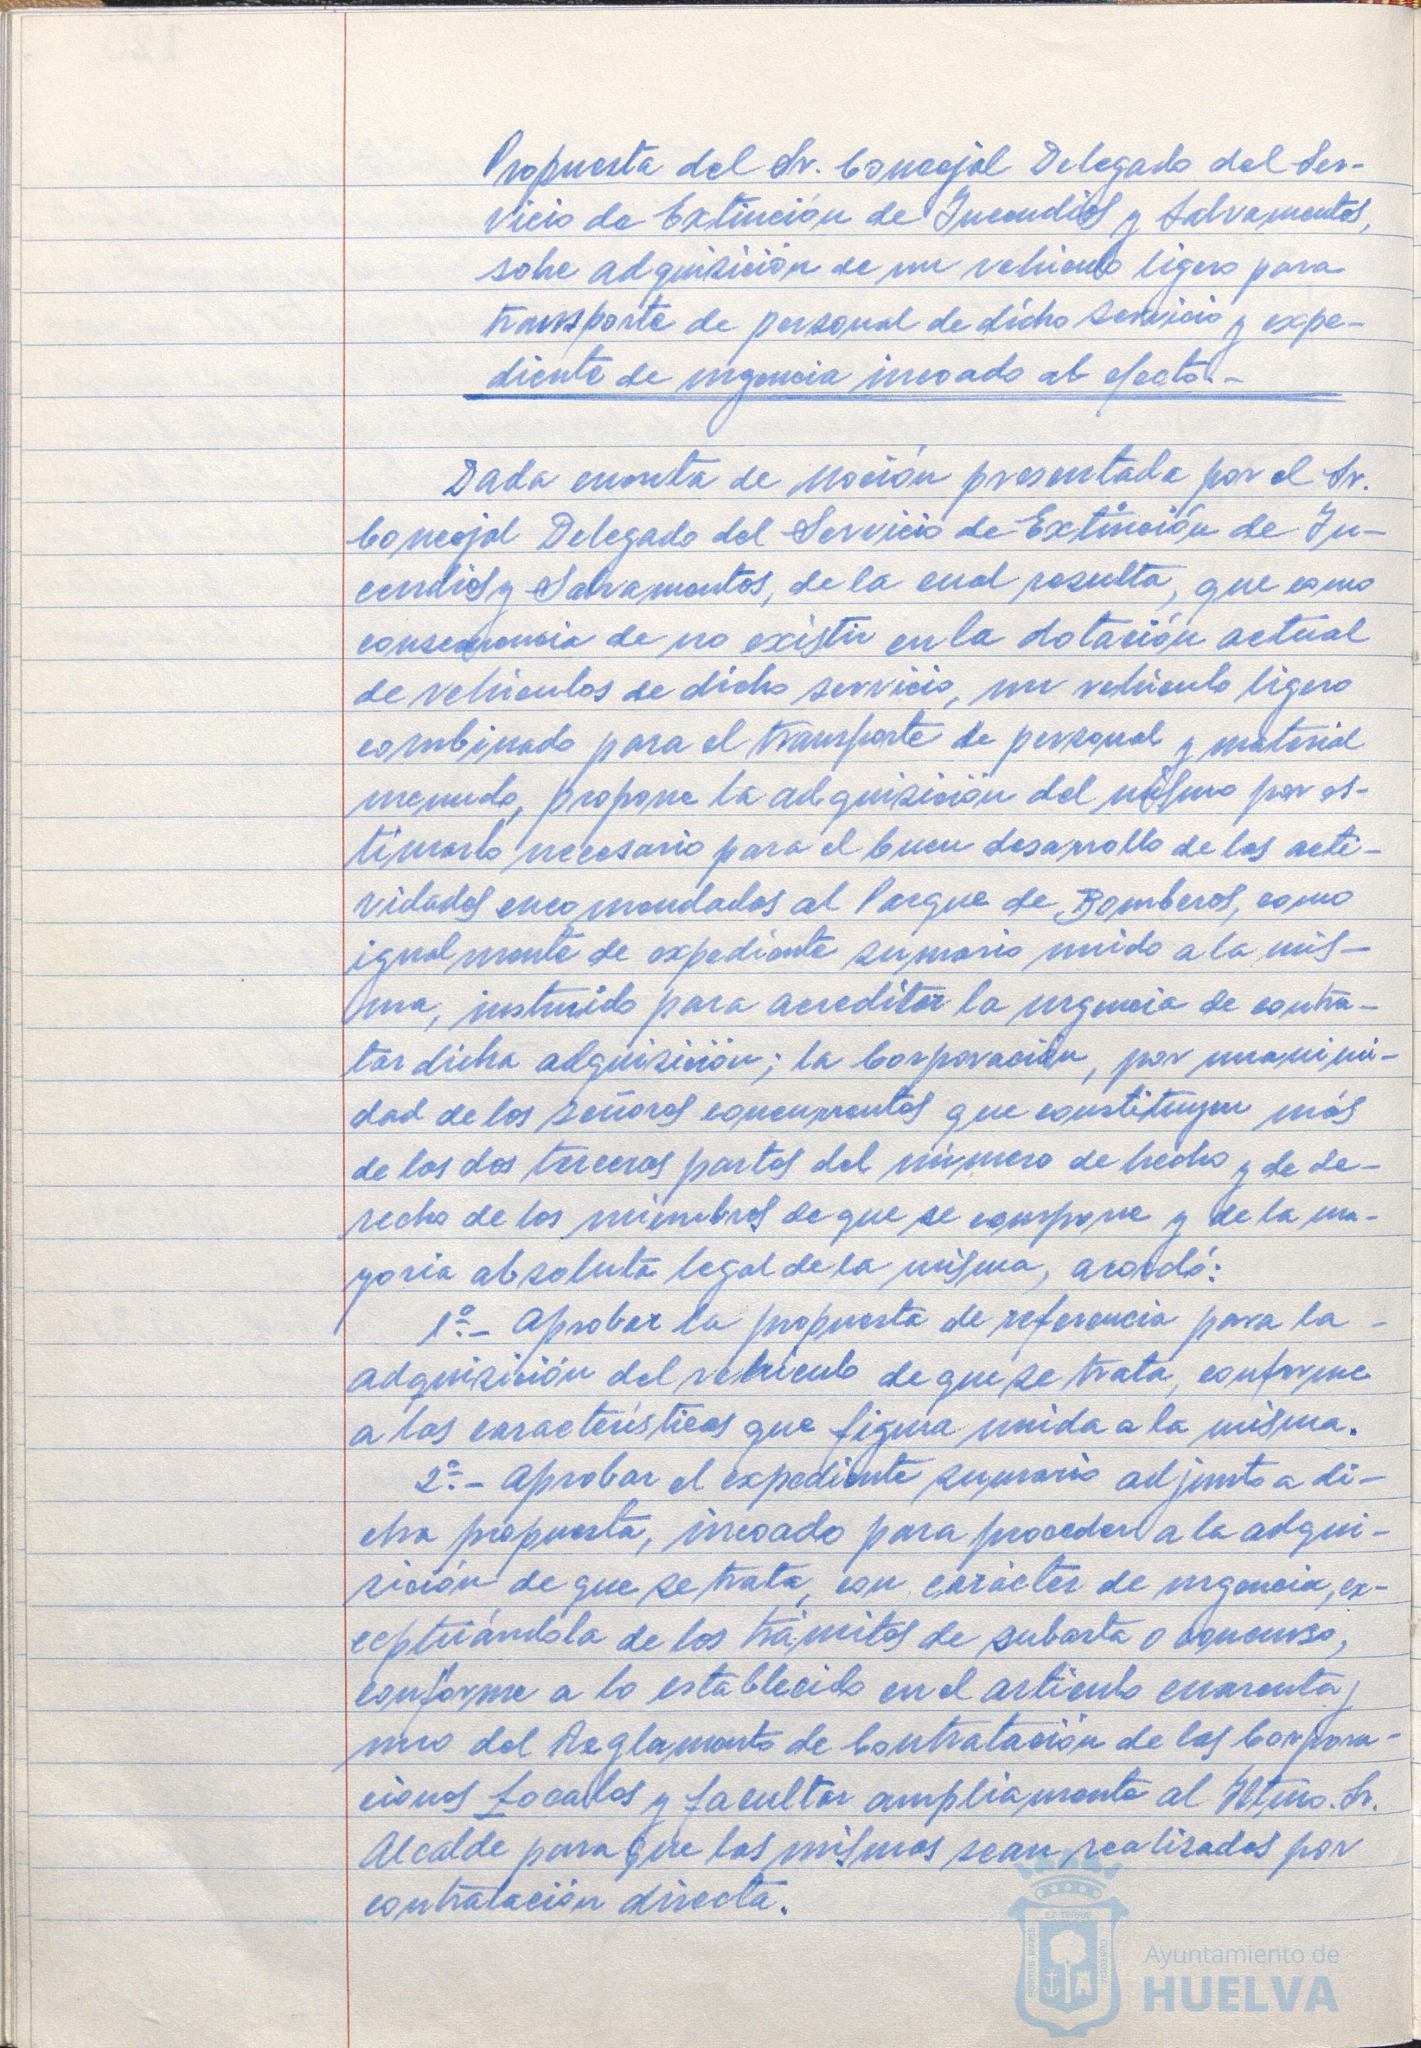 Propuesta del Sr. Concejal Delegado del Ser-
vicio de Extinción de Incendios y Salvamentos,
sobre adquisición de un vehículo ligero para
transporte de personal de dicho servicio y expe-
diente de urgencia incoado al efecto.-
Dada cuenta de moción presentada por el Sr.
Concejal Delegado del Servicio de Extinción de In-
cendios y Salvamentos, de la cual resulta, que como
consecuencia de no existir en la dotación actual
de vehículos de dicho servicio, un vehículo ligero
combinado para el transporte de personal y material
menudo, propone la adquisición del mismo por es-
timarlo necesario para el buen desarrollo de las acti-
vidades encomendadas al Parque de Bomberos, como
igualmente de expediente sumario unido a la mis-
ma, instruido para acreditar la urgencia de contra-
tar dicha adquisición; la Corporación, por unanimi-
dad de los señores concurrentes que constituyen más
de las dos terceras partes del número de hecho y de de-
recho de los miembros de que se compone y de la ma-
yoría absoluta legal de la misma, acordó:
1º.- Aprobar la propuesta de referencia para la -
adquisición del vehículo de que se trata, conforme
a las características que figura unida a la misma.
2º.- Aprobar el expediente sumario adjunto a di-
cha propuesta, incoado para proceder a la adqui-
sición de que se trata, con carácter de urgencia, ex-
ceptuándola de los trámites de subasta o concurso,
conforme a lo establecido en el artículo cuarenta y
uno del Reglamento de Contratación de las Corpora-
ciones Locales y facultar ampliamente al Iltmo. Sr.
Alcalde para que las mismas sean realizadas por
contratación directa.
Ayuntamiento de
HUELVA